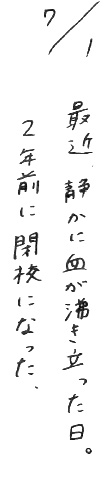 7/1
最近、静かに血が沸き立った日。
2年前に閉校になった、